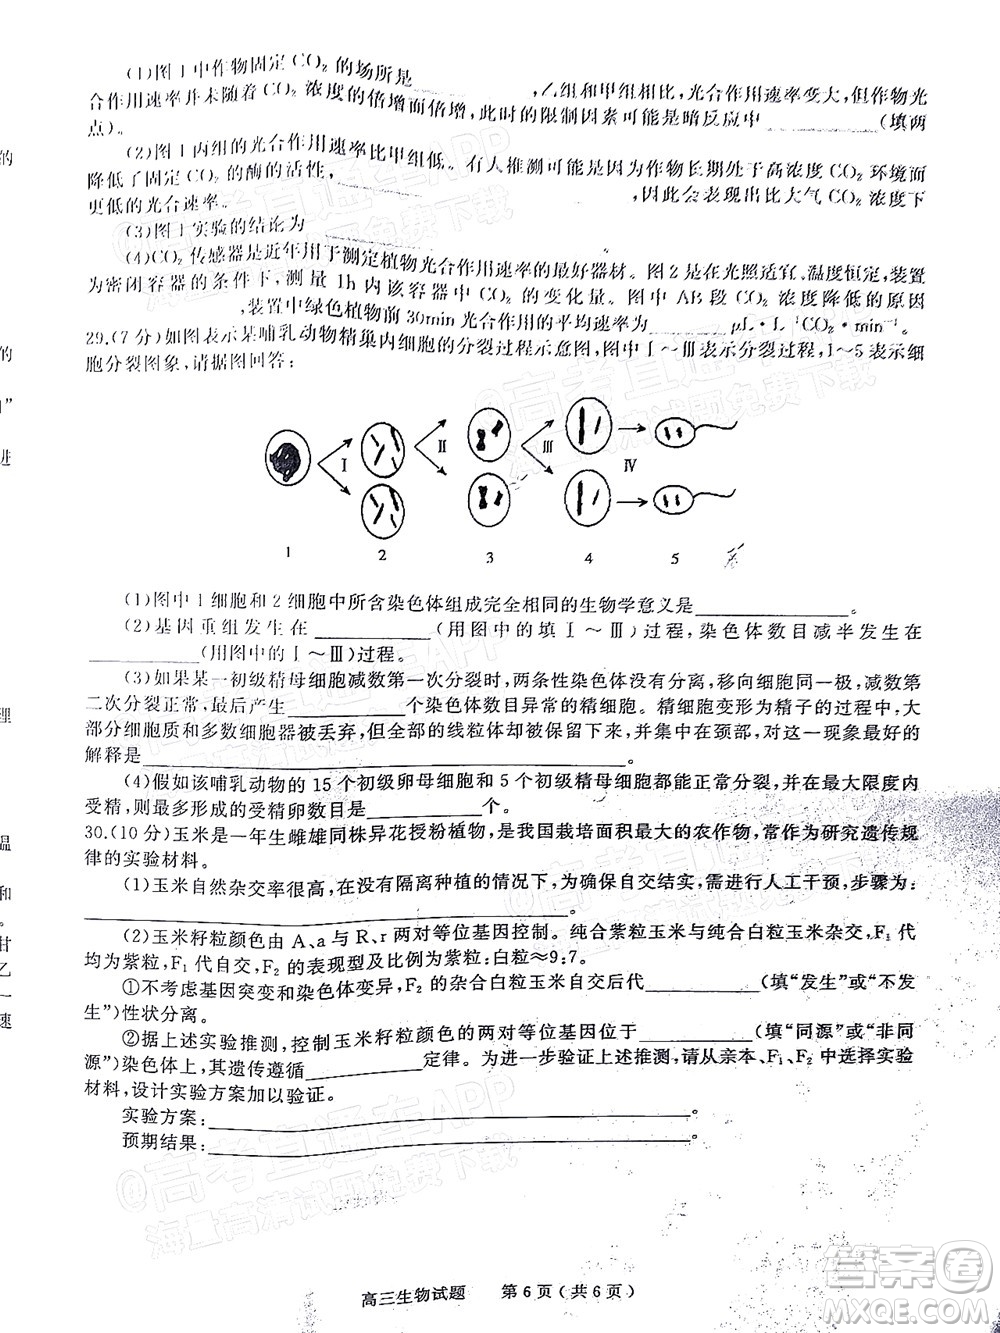 (1)图1中作物固定CO₂的场所是________,乙组和甲组相比,光合作用速率变大,但作物光
合作用速率并未随着CO₂浓度的倍增而倍增,此时的限制因素可能是暗反应中________(填两
点)。
(2)图1丙组的光合作用速率比甲组低。有人推测可能是因为作物长期处于高浓度CO₂环境而
降低了固定CO₂的酶的活性,________,因此会表现出比大气CO₂浓度下
更低的光合速率。
(3)图1实验的结论为________。
(4)CO₂传感器是近年用于测定植物光合作用速率的最好器材。图2是在光照适宜、温度恒定,装置
为密闭容器的条件下,测量1h内该容器中CO₂的变化量。图中AB段CO₂浓度降低的原因
________,装置中绿色植物前30min光合作用的平均速率为________μL·L⁻¹CO₂·min⁻¹。
29.(7分)如图表示某哺乳动物精巢内细胞的分裂过程示意图,图中Ⅰ~Ⅲ表示分裂过程,1~5表示细
胞分裂图象,请据图回答:
Ⅰ Ⅱ Ⅲ Ⅳ
1 2 3 4 5
(1)图中1细胞和2细胞中所含染色体组成完全相同的生物学意义是________。
(2)基因重组发生在________(用图中的填Ⅰ~Ⅲ)过程,染色体数目减半发生在
________(用图中的Ⅰ~Ⅲ)过程。
(3)如果某一初级精母细胞减数第一次分裂时,两条性染色体没有分离,移向细胞同一极,减数第
二次分裂正常,最后产生________个染色体数目异常的精细胞。精细胞变形为精子的过程中,大
部分细胞质和多数细胞器被丢弃,但全部的线粒体却被保留下来,并集中在颈部,对这一现象最好的
解释是________。
(4)假如该哺乳动物的15个初级卵母细胞和5个初级精母细胞都能正常分裂,并在最大限度内
受精,则最多形成的受精卵数目是________个。
30.(10分)玉米是一年生雌雄同株异花授粉植物,是我国栽培面积最大的农作物,常作为研究遗传规
律的实验材料。
(1)玉米自然杂交率很高,在没有隔离种植的情况下,为确保自交结实,需进行人工干预,步骤为:
________。
(2)玉米籽粒颜色由A、a与R、r两对等位基因控制。纯合紫粒玉米与纯合白粒玉米杂交,F₁代
均为紫粒,F₁代自交,F₂的表现型及比例为紫粒:白粒≈9:7。
①不考虑基因突变和染色体变异,F₂的杂合白粒玉米自交后代________(填“发生”或“不发
生”)性状分离。
②据上述实验推测,控制玉米籽粒颜色的两对等位基因位于________(填“同源”或“非同
源”)染色体上,其遗传遵循________定律。为进一步验证上述推测,请从亲本、F₁、F₂中选择实验
材料,设计实验方案加以验证。
实验方案:________
预期结果:________
高三生物试题 第6页(共6页)
的
的
进
理
温
和
。
甘
乙
一
速
@高考直通车APP
海量高清试题免费下载
答案圈
MXQE.COM